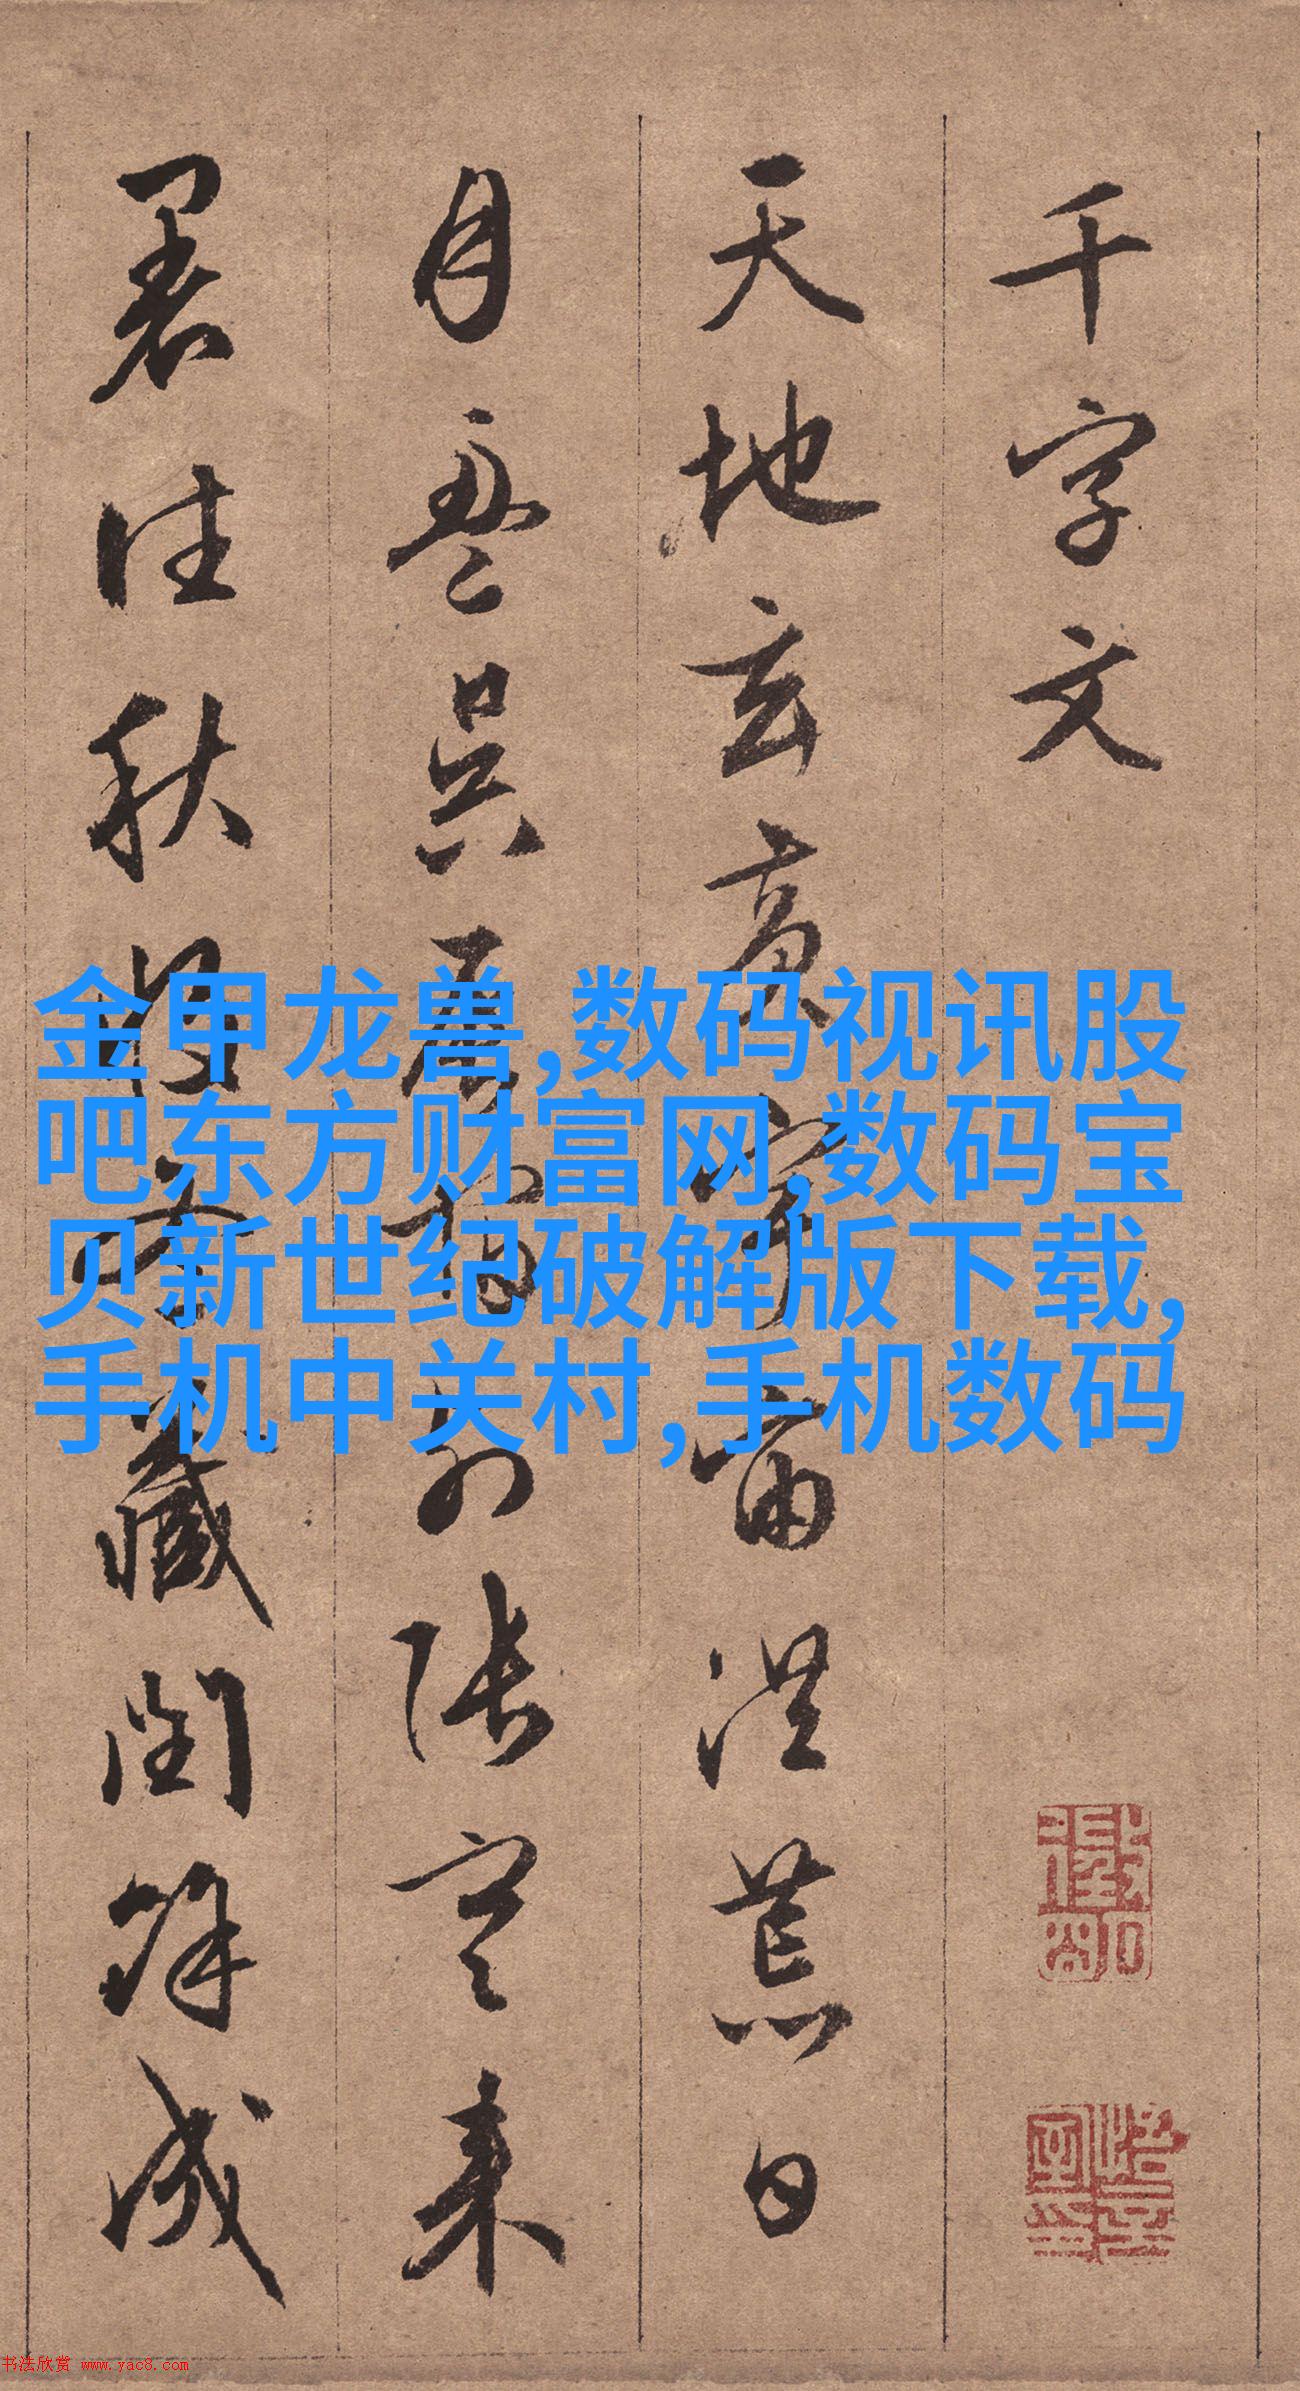 千字文
天地玄黄宇宙洪荒日
月盈昃辰宿列张寒来
暑往秋收冬藏闰余成
金甲龙兽,数码视讯股
吧东方财富网,数码宝
贝新世纪破解版下载,
手机中关村,手机数码
书法欣赏 www.yac8.com